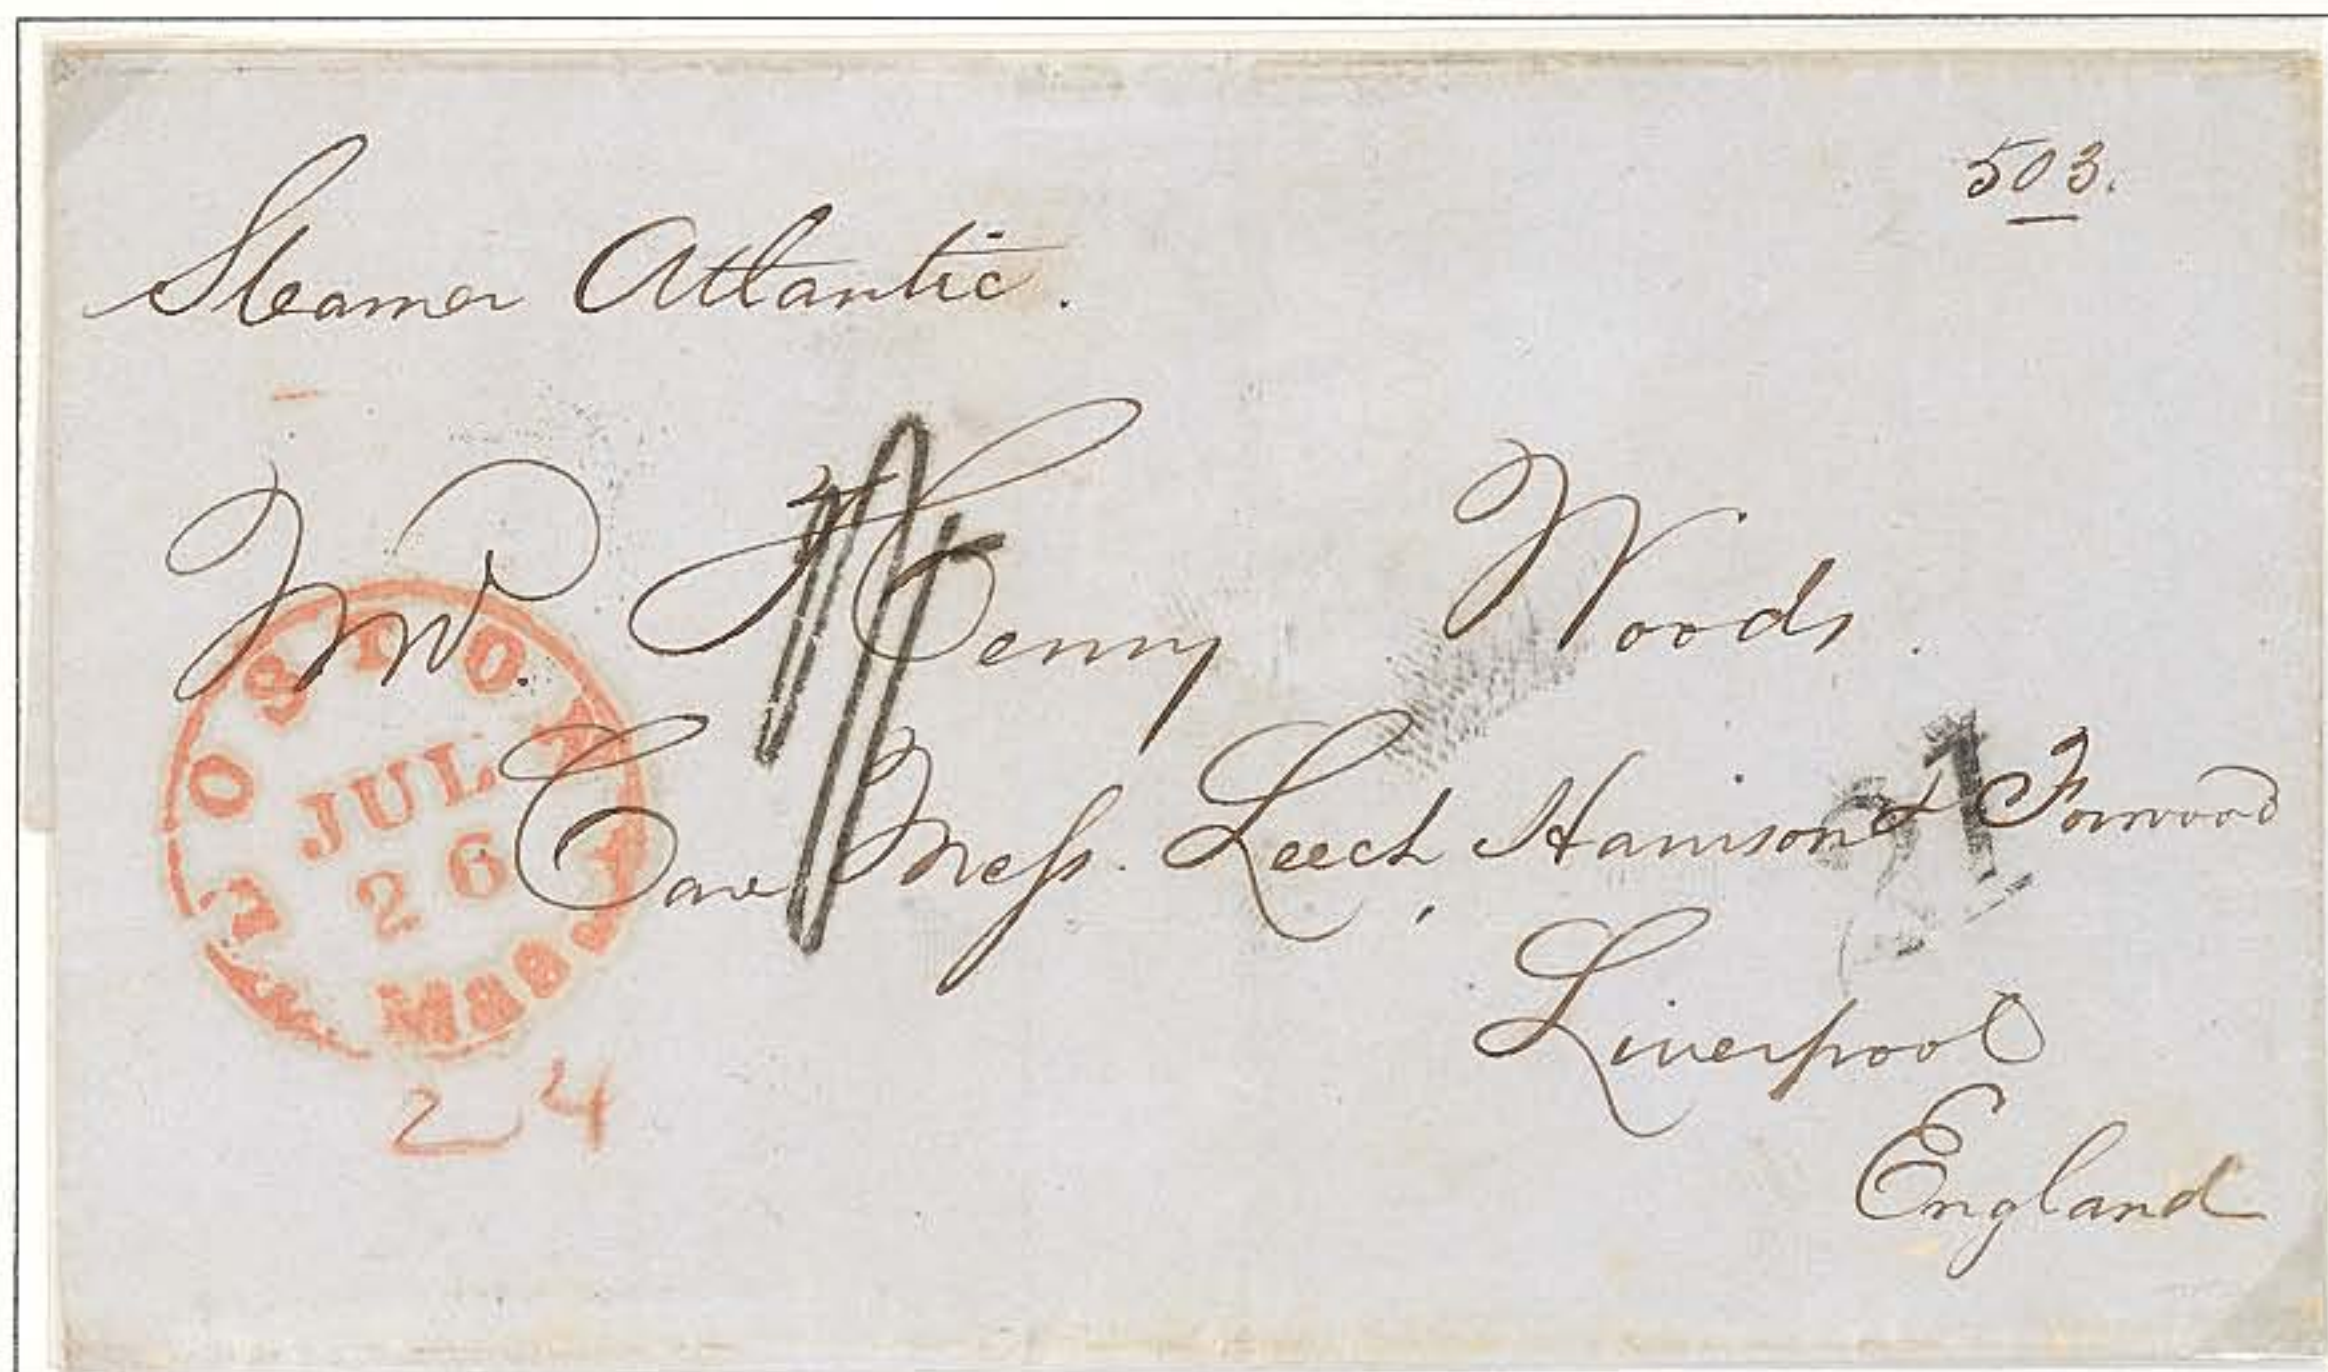 503.
Steamer Atlantic.
Mr. Henry Woods.
Care Mess. Leech, Harrison & Forwood
Liverpool
England
BOSTON
JUL
26
Mass.
24